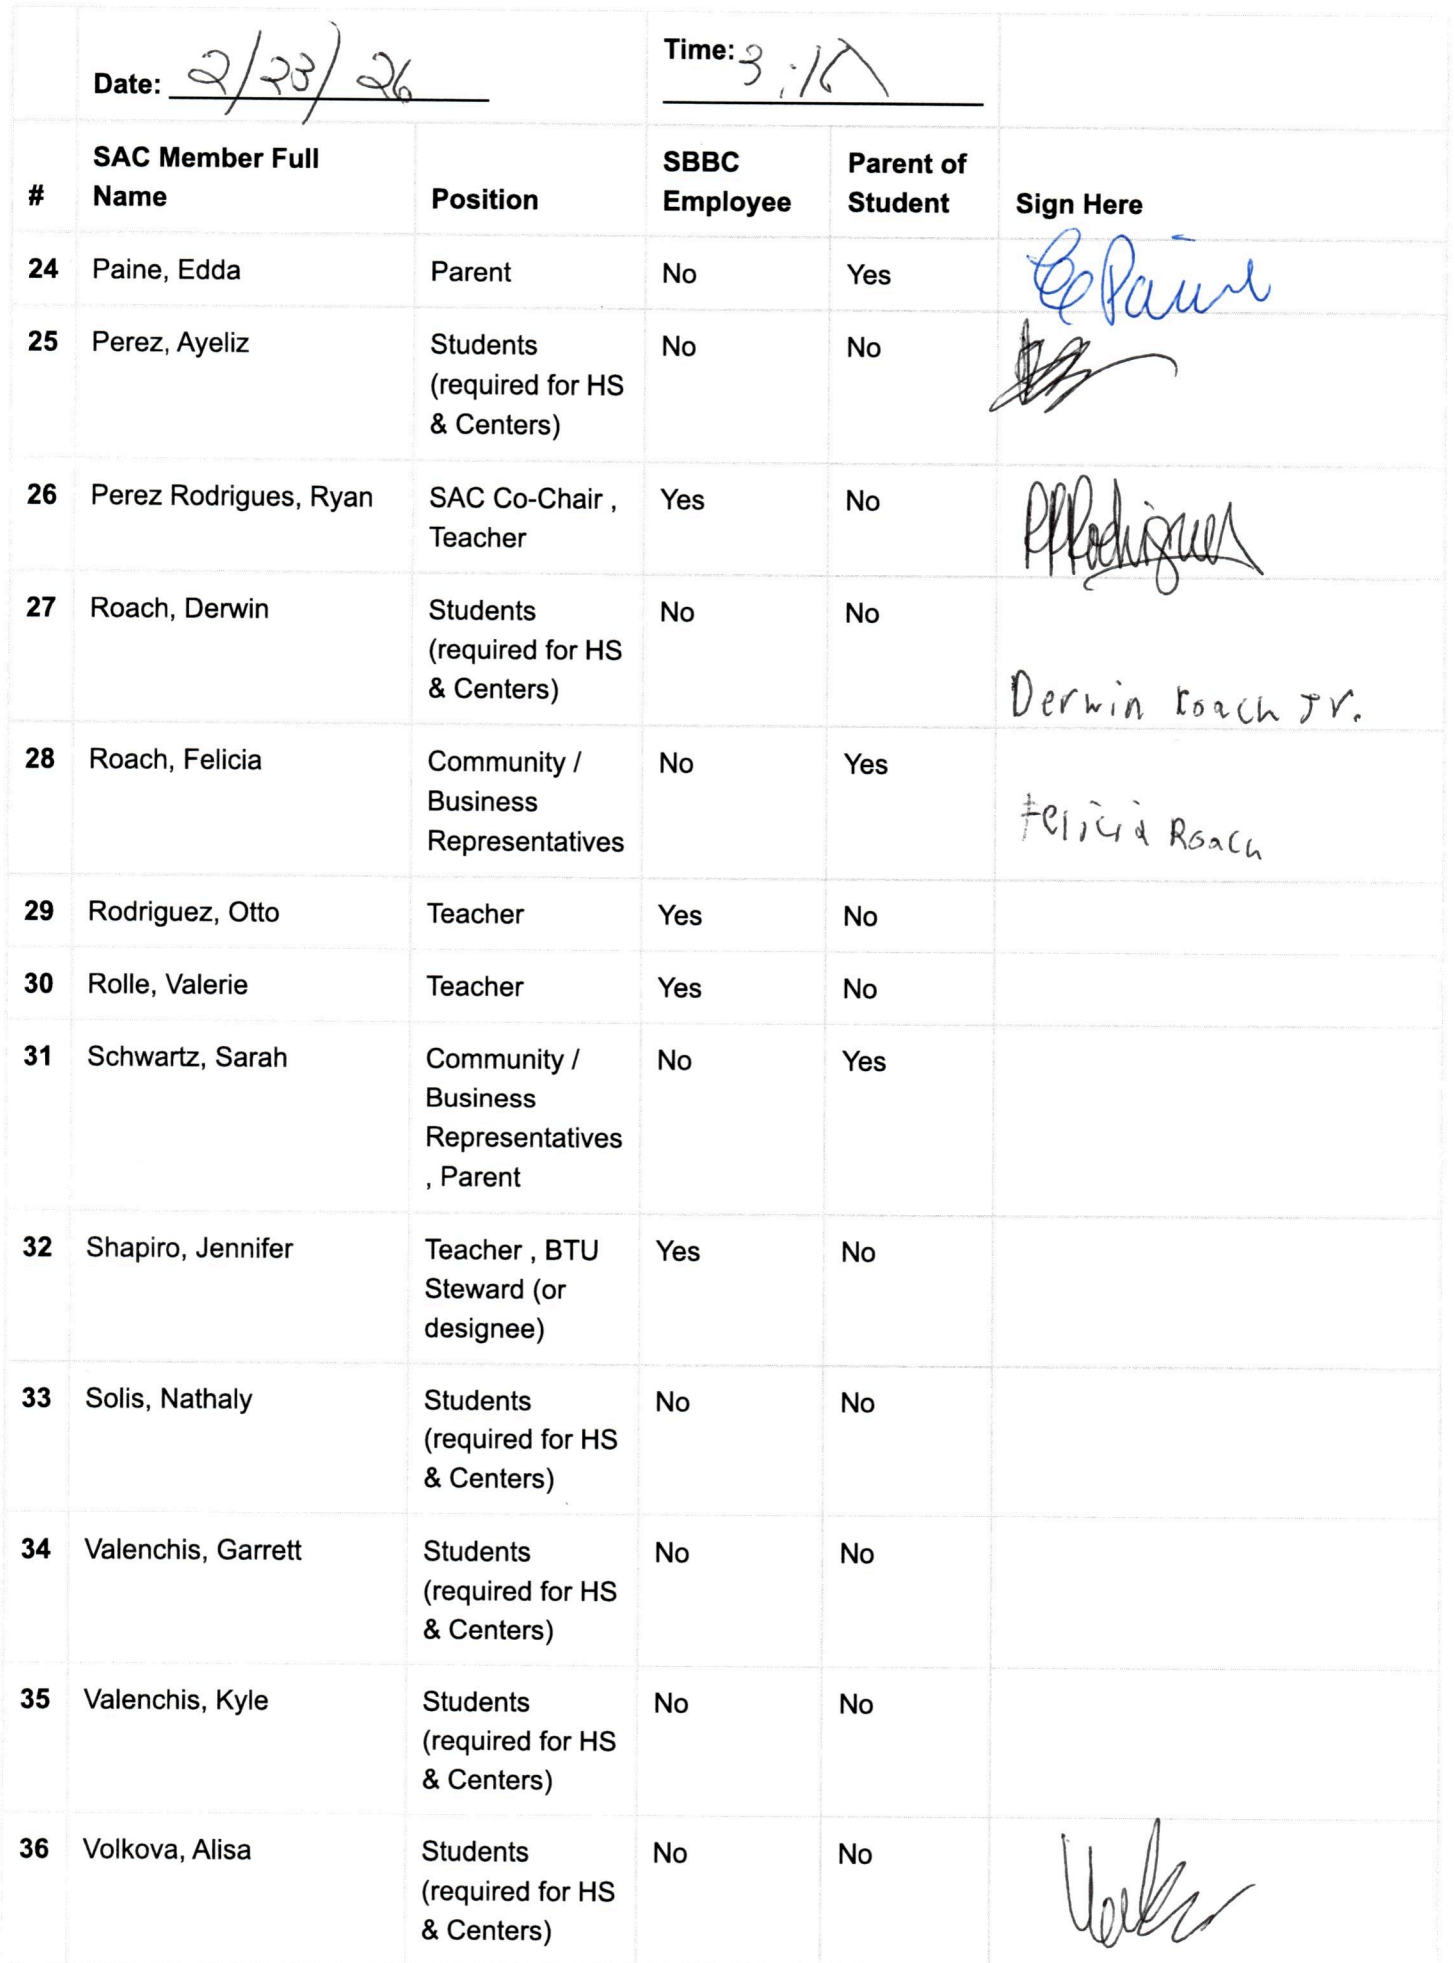 Date: 2/23/26
Time: 3:10
# SAC Member Full Name Position SBBC Employee Parent of Student Sign Here
24 Paine, Edda Parent No Yes E Paine
25 Perez, Ayeliz Students No No
(required for HS
& Centers)
26 Perez Rodrigues, Ryan SAC Co-Chair , Yes No RPRodrigues
Teacher
27 Roach, Derwin Students No No
(required for HS
& Centers) Derwin Roach Jr.
28 Roach, Felicia Community / No Yes
Business
Representatives Felicia Roach
29 Rodriguez, Otto Teacher Yes No
30 Rolle, Valerie Teacher Yes No
31 Schwartz, Sarah Community / No Yes
Business
Representatives
, Parent
32 Shapiro, Jennifer Teacher , BTU Yes No
Steward (or
designee)
33 Solis, Nathaly Students No No
(required for HS
& Centers)
34 Valenchis, Garrett Students No No
(required for HS
& Centers)
35 Valenchis, Kyle Students No No
(required for HS
& Centers)
36 Volkova, Alisa Students No No
(required for HS
& Centers)